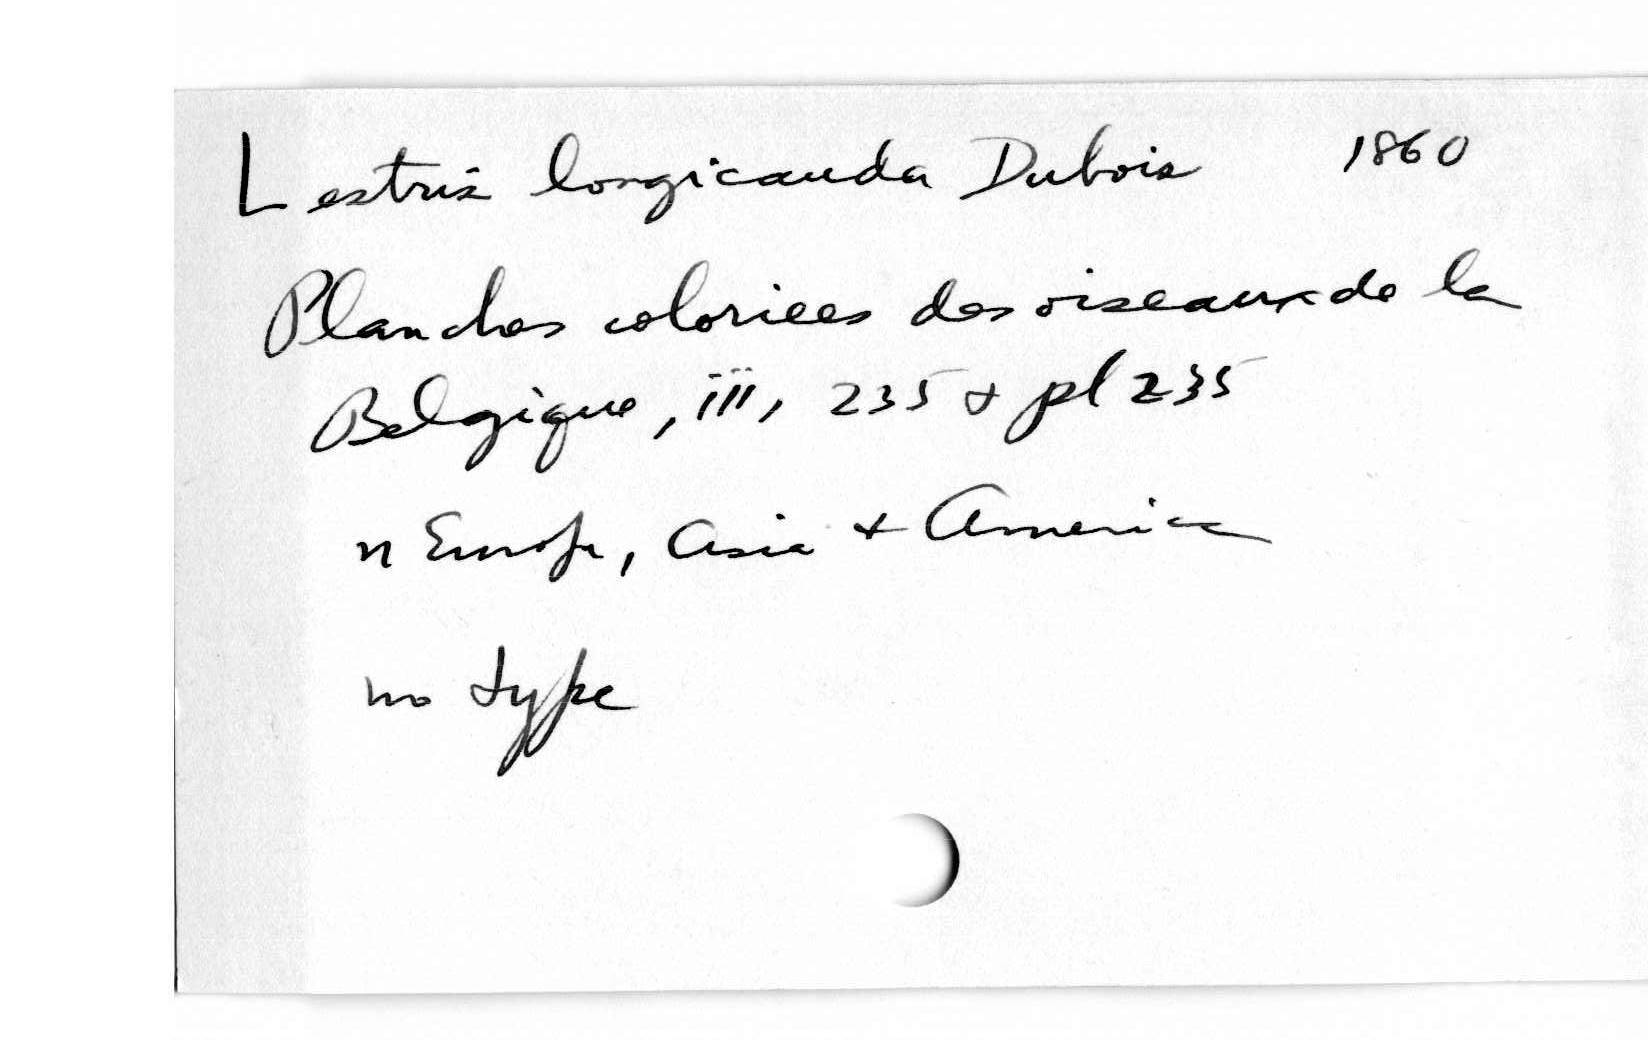 Lestris longicauda Dubois 1860
Planches coloriees des oiseaux de la
Belgique, iii, 235 & pl 235
n Europe, Asia + America
no type